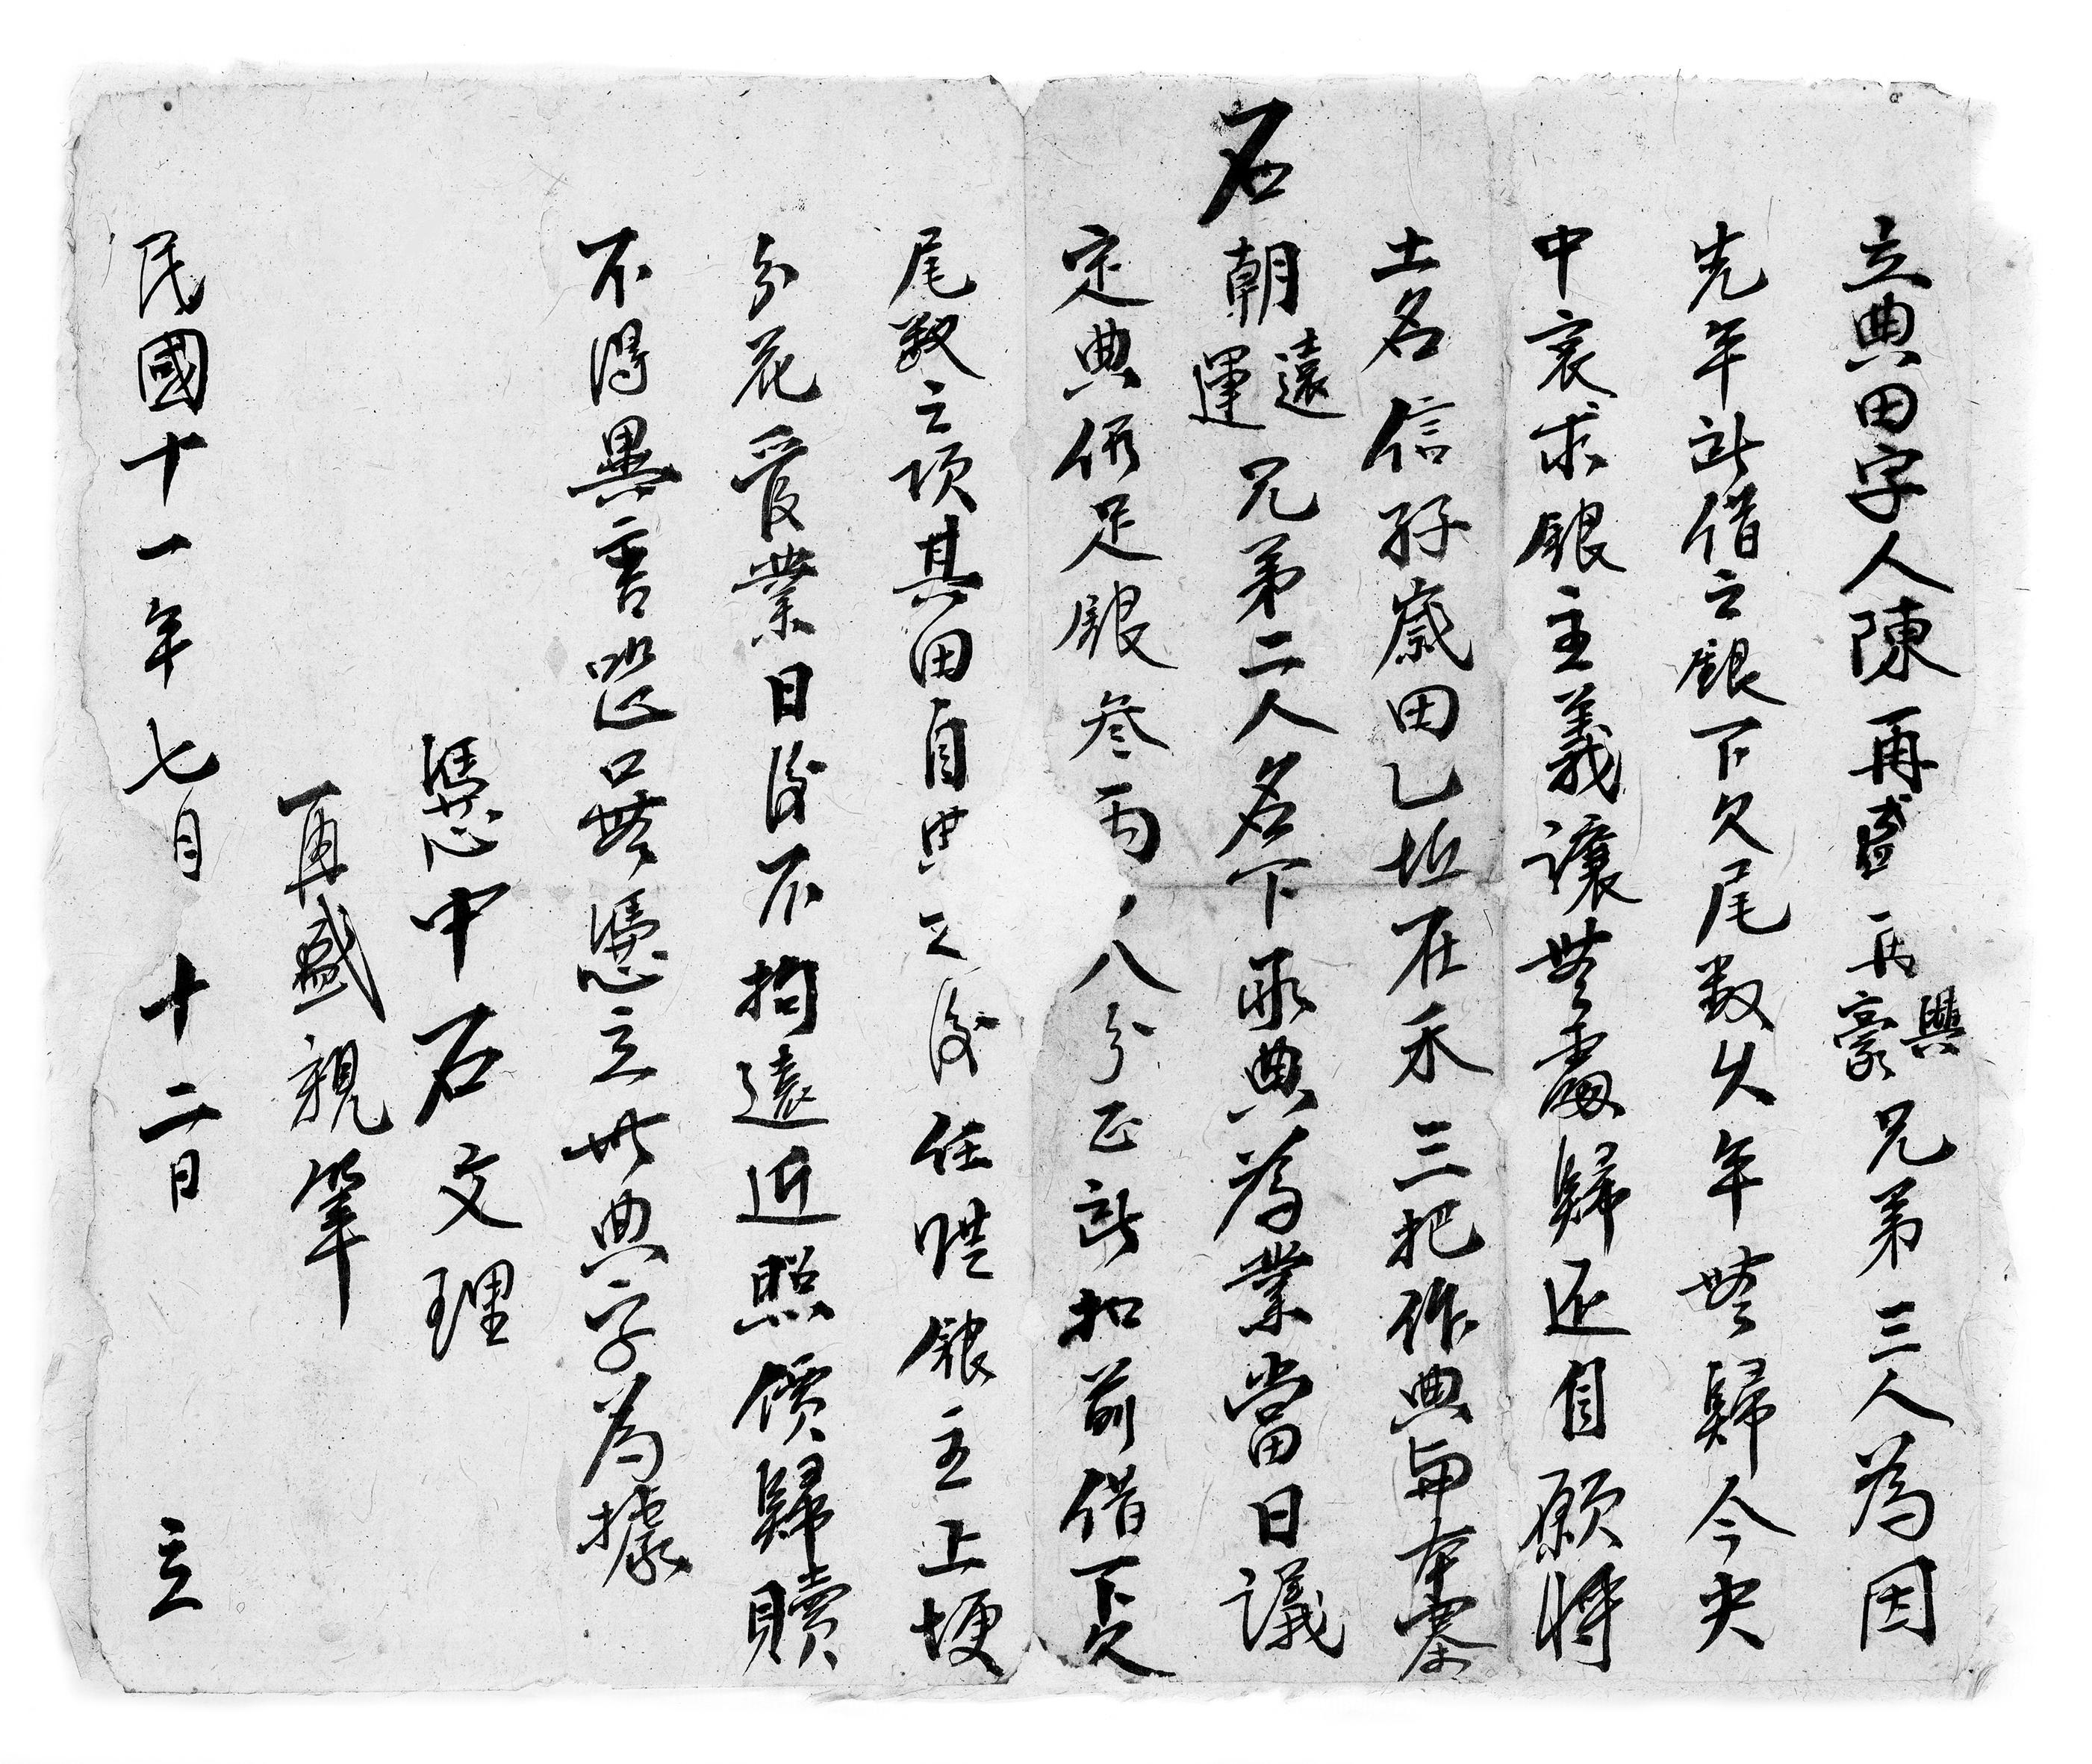 立典田字人陳再盛再興豪兄弟三人為因
先年所借之銀下欠尾数久年無歸今央
中哀求銀主義讓無處歸还自願將
土名信孖嵗田乙坵在禾三把作典與本寨
石朝遠運兄弟二人名下承典為業當日議
定典價足銀叁両八分正所扣前借下欠
尾数之項其田自典之後任凴銀主上埂
分花管業日後不拘遠近照價歸贖
不得異言恐口無憑立此典字為據
憑中石文理
再盛親筆
民國十一年七月十二日立